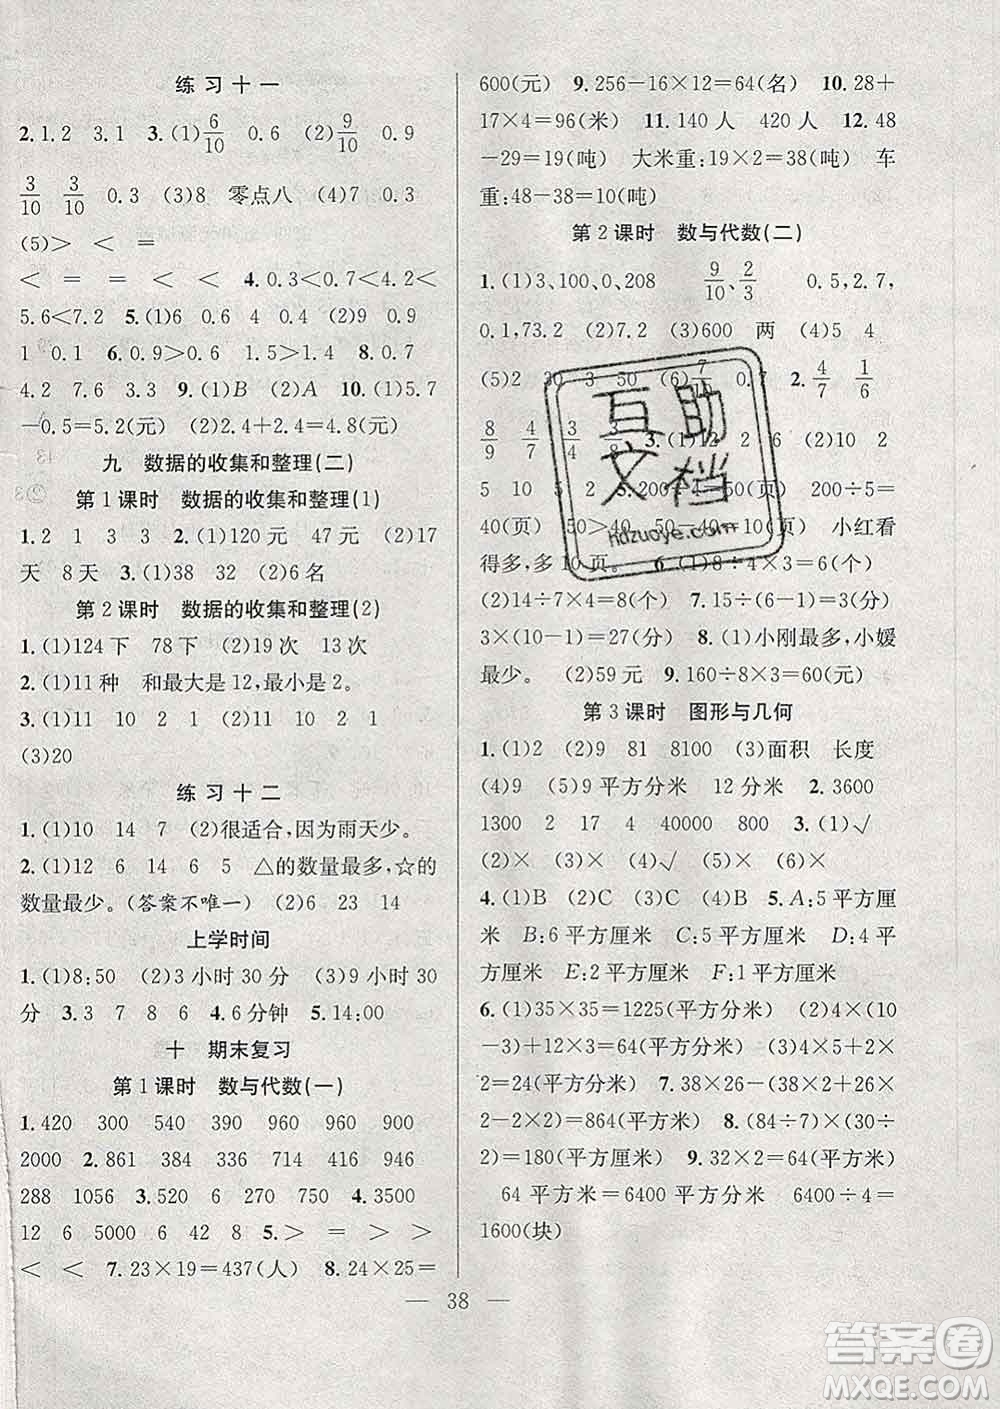 练习十一
2.1.2 3.1 3.(1)6/10 0.6 (2)9/10 0.9
3/10 3/10 0.3 (3)8 零点八 (4)7 0.3
(5)> < =
< = = < 4.0.3<0.7 4.2<4.4
5.6<7.2 5.(1)6 0.6 (2)9 0.9
1 0.1 6.0.9>0.2 3.5>1.5 8.0.7
4.2 7.6 3.3 9.(1)B (2)A 10.(1)5.7
-0.5=5.2(元) (2)2.4+2.4=4.8(元)
九 数据的收集和整理(二)
第1课时 数据的收集和整理(1)
1.2 1 3 3 2.(1)120元 47元 (2)17
天 8天 3.(1)38 32 (2)6名
第2课时 数据的收集和整理(2)
1.(1)124下 78下 (2)19次 13次
2.(1)11种 和最大是12,最小是2。
3.(1)11 10 2 1 (2)11 10 2 1
(3)20
练习十二
1.(1)10 14 7 (2)很适合,因为雨天少。
2.(1)12 6 14 6 5 △的数量最多,☆的
数量最少。(答案不唯一) (2)6 23 14
上学时间
1.(1)8:50 (2)3小时30分 (3)9小时30
分 3.3 7 8 6 4.6分钟 5.14:00
十 期末复习
第1课时 数与代数(一)
1.420 300 540 390 960 960 900
2000 2.861 384 192 928 345 946
288 1056 3.520 6 600 350 4.3500
12 6 5000 6 42 8 5.> = > >
< < < 7.23×19=437(人) 8.24×25=
600(元) 9.256-16×12=64(名) 10.28+
17×4=96(米) 11.140人 420人 12.48
-29=19(吨) 大米重:19×2=38(吨) 车
重:48-38=10(吨)
第2课时 数与代数(二)
1.(1)3、100、0、208 9/10、2/3 0.5、2.7、
0.1、73.2 (2)7.2 (3)600 两 (4)5 4
(5)2 30 3 50 (6) 0.7 2.4/7 1/6
8/9 4/7 3/4 3.(1)12 2 6 (2)10 2
5 10 5 2 5.200÷4=50(页) 200÷5=
40(页) 50>40 50-40=10(页) 小红看
得多,多10页。 6.(1)8÷4×3=6(个)
(2)14÷7×4=8(个) 7.15÷(6-1)=3(分)
3×(10-1)=27(分) 8.(1)小刚最多,小媛
最少。 (2)59元 9.160÷8×3=60(元)
第3课时 图形与几何
1.(1)2 (2)9 81 8100 (3)面积 长度
(4)9 (5)9平方分米 12分米 2.3600
1300 2 17 4 40000 800 3.(1)√
(2)× (3)× (4)√ (5)× (6)×
4.(1)B (2)C (3)C (4)B 5.A:5平方厘
米 B:6平方厘米 C:5平方厘米 D:4
平方厘米 E:2平方厘米 F:1平方厘米
6.(1)35×35=1225(平方分米) (2)4×(10
-3+3×3)=64(平方分米) (3)2×(10+
2)=24(平方分米) 7.38×26-(38+26×
2-2×2)=864(平方米) 8.(84÷7)×(30÷
2)=180(平方厘米) 9.32×2=64(平方米)
64平方米=6400平方分米 6400÷4=
1600(块)
互助
文档
hdzuoye.com
38
答案圈
MXQE.COM